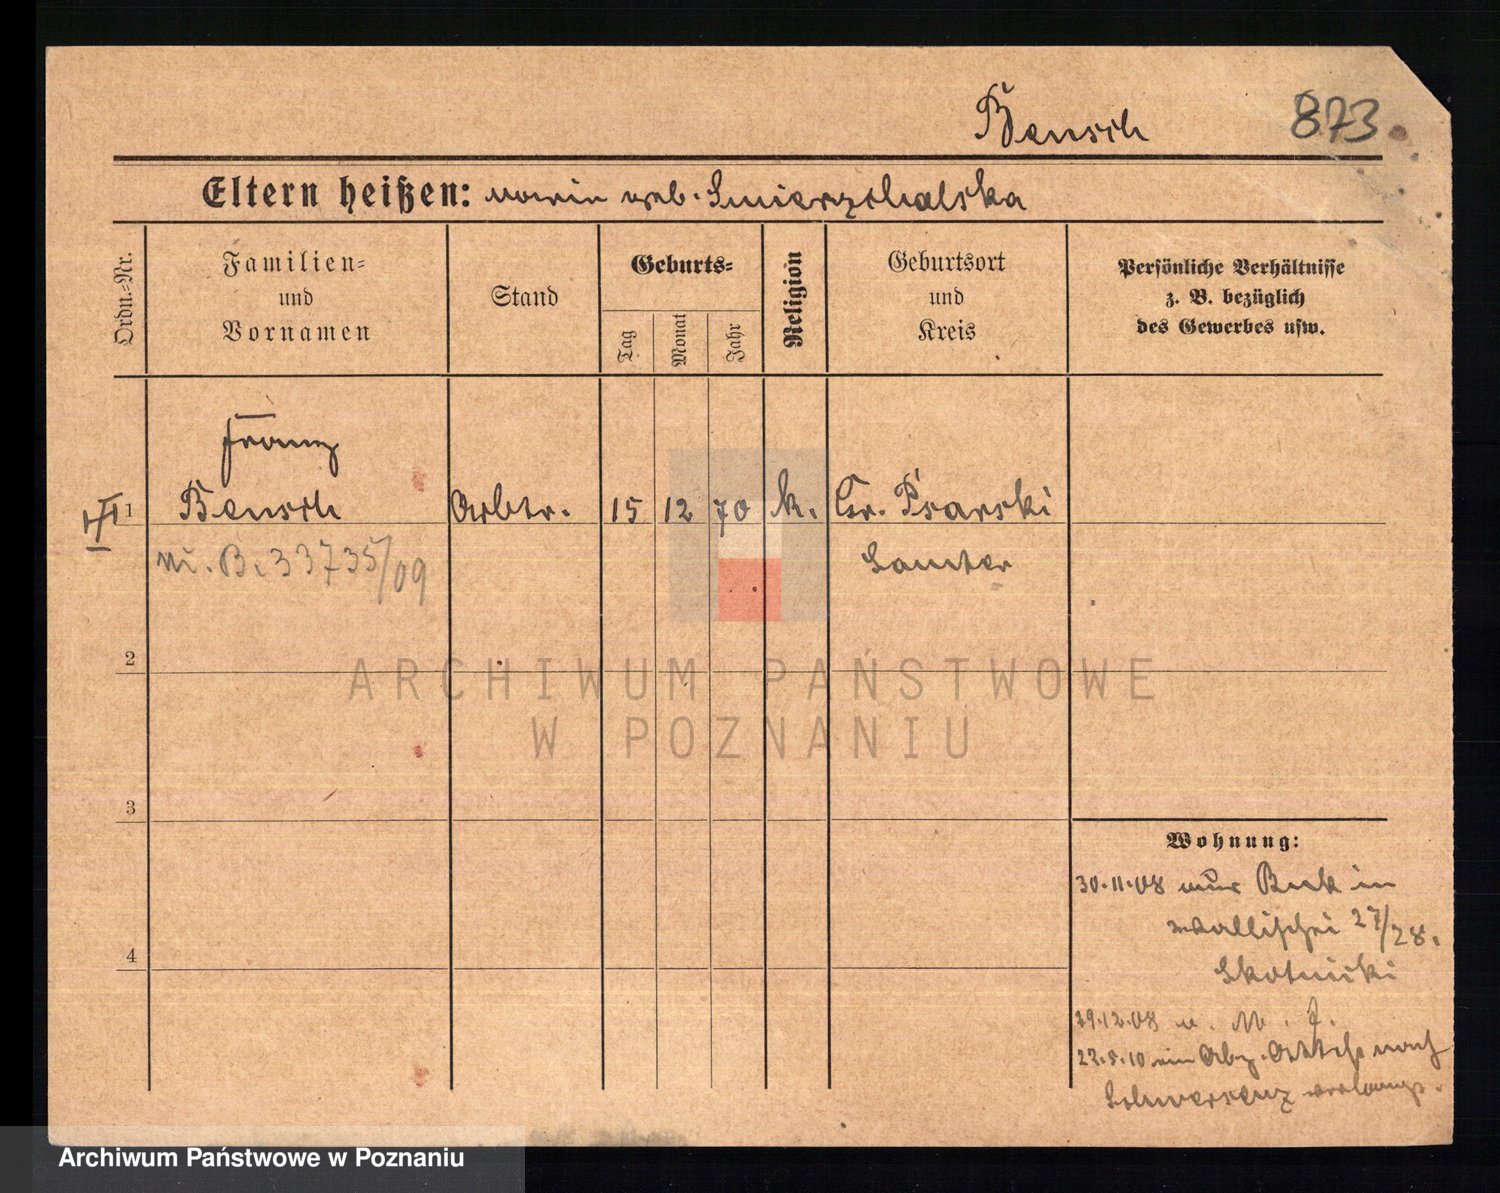 Bensch 873
Eltern heißen: Marie geb. Smierzchalska
Ordn.-Nr.
Familien-
und
Vornamen
Stand
Geburts-
Tag
Monat
Jahr
Religion
Geburtsort
und
Kreis
Persönliche Verhältnisse
z. B. bezüglich
des Gewerbes usw.
Franz
1 Bensch Arbtr. 15 12 70 k. Gr. Psarski
B. 33735/09 Samter
2
3
4
Wohnung:
30.11.08 aus Buk in
Wallischei 27/28.
Skotnicki
29.12.08 u. M. J.
23.5.10 ein Abz. Attest nach
Schwersenz verlangt.
ARCHIWUM PAŃSTWOWE
W POZNANIU
Archiwum Państwowe w Poznaniu